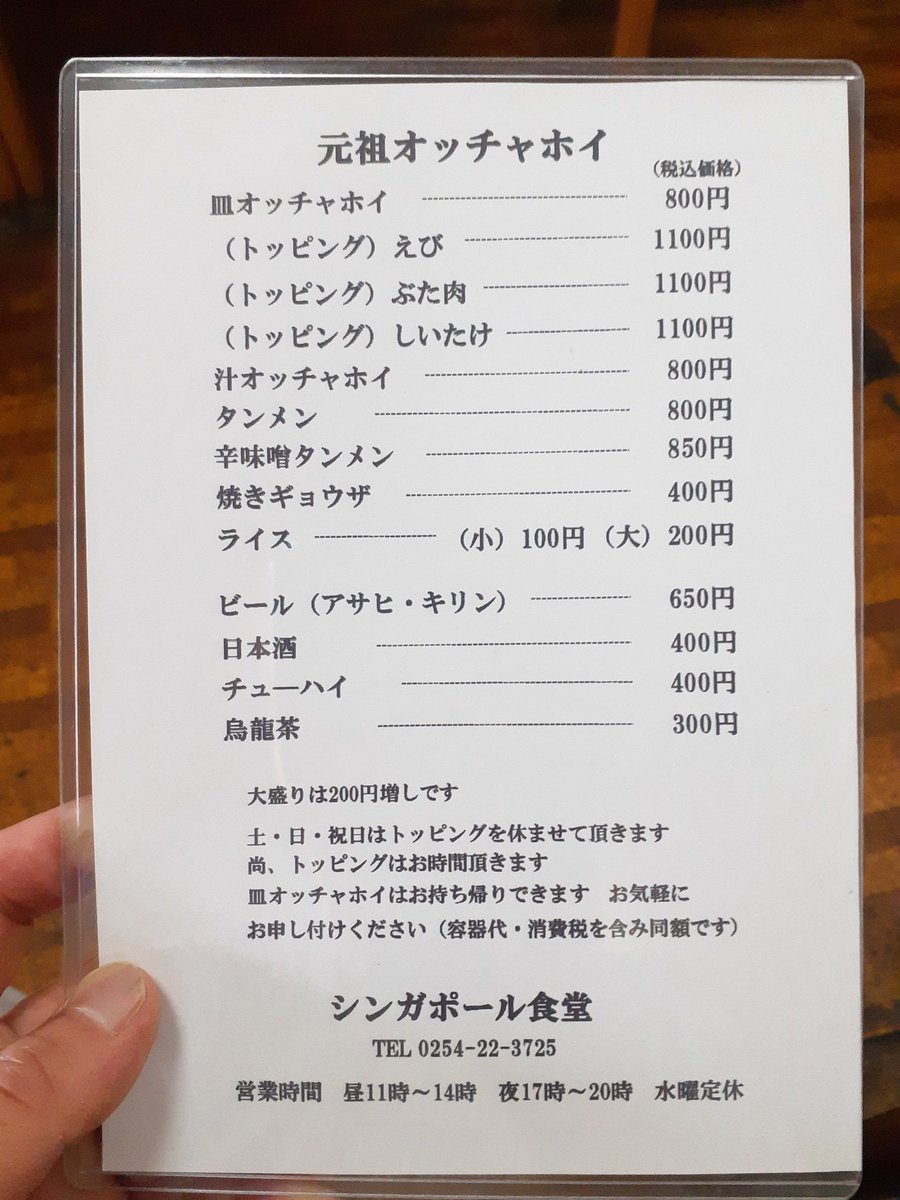 元祖オッチャホイ
（税込価格）
皿オッチャホイ 800円
（トッピング）えび 1100円
（トッピング）ぶた肉 1100円
（トッピング）しいたけ 1100円
汁オッチャホイ 800円
タンメン 800円
辛味噌タンメン 850円
焼きギョウザ 400円
ライス （小）100円（大）200円
ビール（アサヒ・キリン） 650円
日本酒 400円
チューハイ 400円
烏龍茶 300円
大盛りは200円増しです
土・日・祝日はトッピングを休ませて頂きます
尚、トッピングはお時間頂きます
皿オッチャホイはお持ち帰りできます　お気軽に
お申し付けください（容器代・消費税を含み同額です）
シンガポール食堂
TEL 0254-22-3725
営業時間　昼11時～14時　夜17時～20時　水曜定休